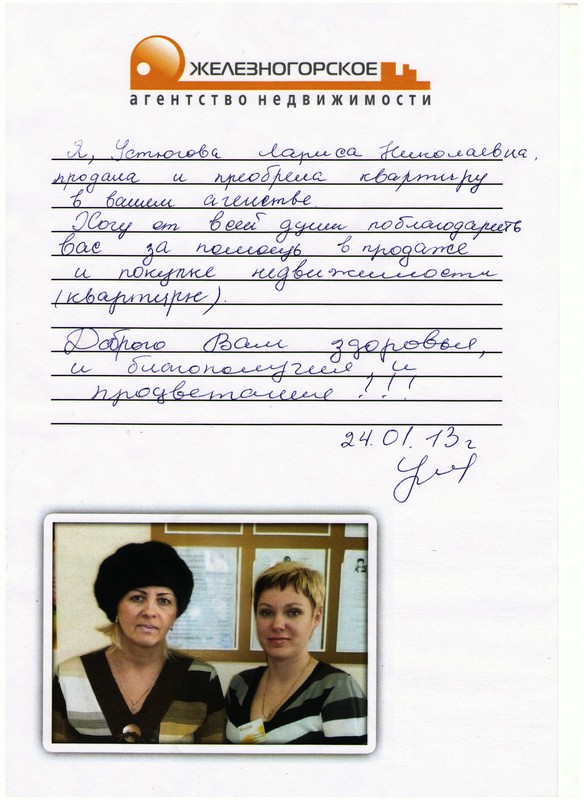 ЖЕЛЕЗНОГОРСКОЕ
агентство недвижимости
Я, Устюгова Лариса Николаевна,
продала и преобрела квартиру
в вашем агенстве.
Хочу от всей души поблагодарить
Вас за помощь в продаже
и покупке недвижимости
(квартиры).
Доброго Вам здоровья,
и благополучия и
процветания !!!
24.01.13г